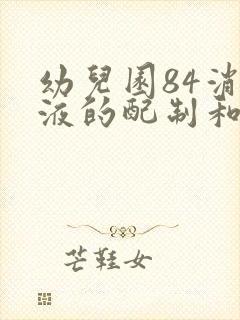 幼兒園84消
液的配制和
芒鞋女